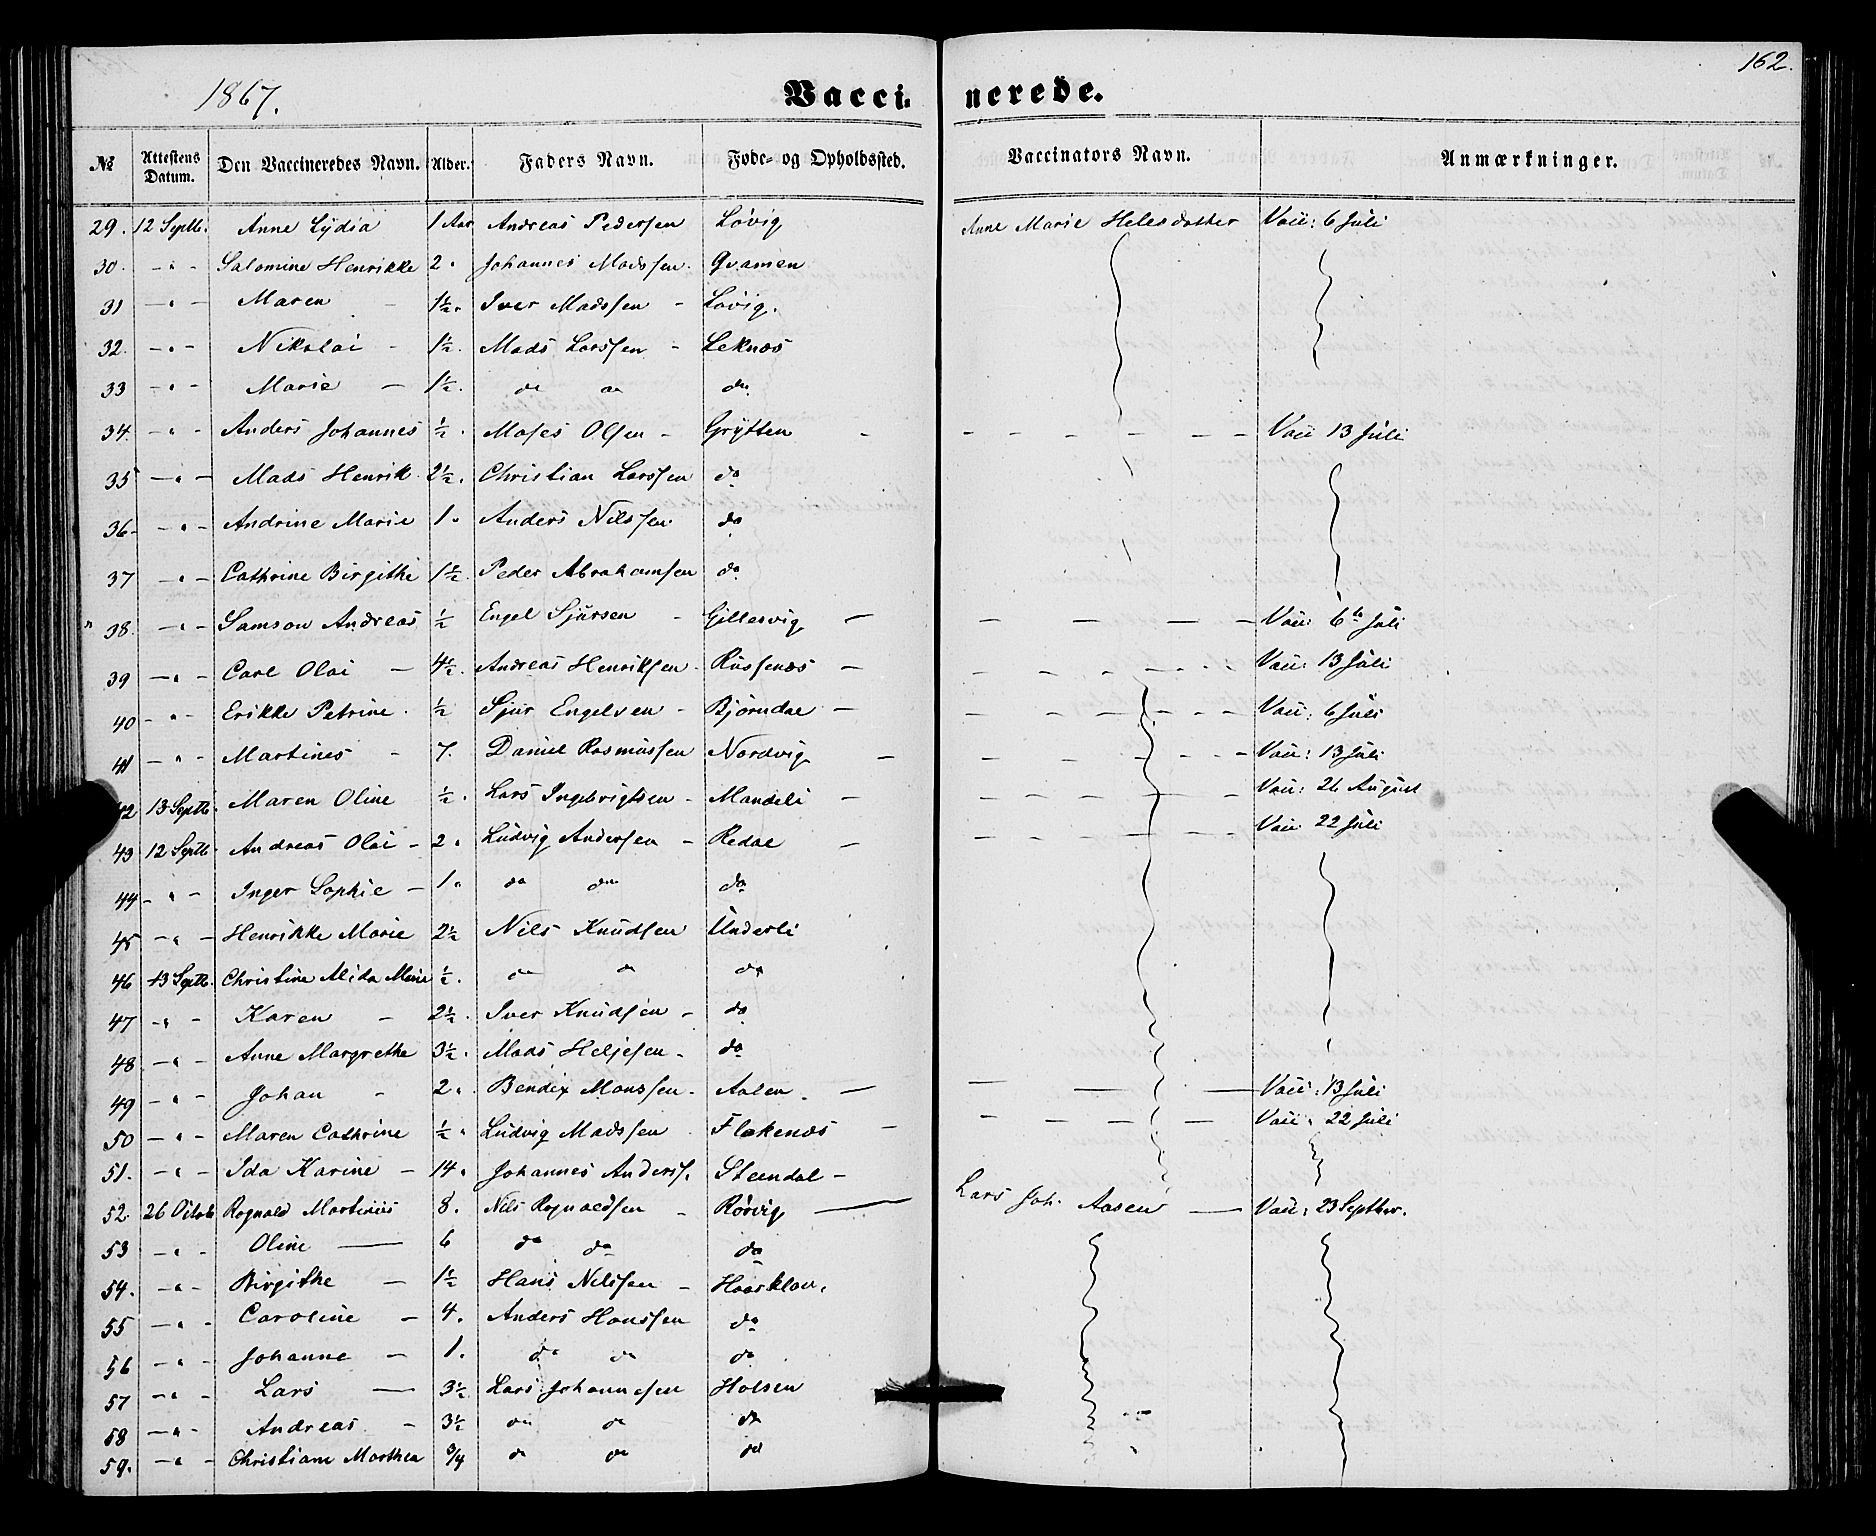 162.
1867. Vaccinerede.
№ Attestens Datum. Den Vaccineredes Navn. Alder. Faders Navn. Føde- og Opholdssted. Vaccinators Navn. Anmærkninger.
29. 12 Septb. Anne Lydia 1 Aar Andreas Pedersen Løvig Anne Marie Helesdatter Vacc: 6 Juli
30. - " - Salomine Henrikke 2. Johannes Madssen. Qvamen
31 - " - Maren - 1½. Iver Madssen - Løvig.
32. - " - Nikolai - 1½. Mads Larssen - Leknæs
33 - " - Marie - 1½. do do do
34. - " - Anders Johannes ½. Moses Olsen - Grytten - - - - - - - Vacc 13 Juli
35 - " - Mads Henrik 2½. Christian Larssen do
36- - " - Andrine Marie 1. Anders Nilssen do
37 - " - Cathrine Birgithe 1½. Peder Abrahamsen do
38. - " - Samson Andreas ½ Engel Sjursen - Gillesvig - - - - - Vacc: 6te Juli
39 - " - Carl Olai - 4½. Andreas Henriksen. Russenæs - - - - - - Vacc: 13 Juli
40 - " - Erikke Petrine. ½ Sjur Engelsen - Bjørndal - - - - - - Vacc: 6 Juli
41 - " - Martines - 7. Daniel Rasmussen Nordvig - - - - - - Vacc: 13 Juli
42 13 Septb. Maren Oline ½. Lars Ingebrigtsen - Mandeli - - - - - - Vacc: 26 August
43 12 Septb. Andreas Olai - 2. Ludvig Andersen - Redal - - - - - - Vacc: 22 Juli
44 - " - Inger Sophie - 1. do do do
45 - " - Henrikke Marie 2½ Nils Knudsen Underli
46 13 Septb. Christine Alida Marie ½. do do do
47 - " - Karen - 2½. Iver Knudsen - do
48. - " - Anne Margrethe 3½. Mads Heljesen - do
49 - " - Johan - 2. Bendix Monssen. Aalen. - - - - Vacc: 13 Juli
50 - " - Maren Cathrine ½. Ludvig Madssen Flekenæs - - - - - Vacc: 22 Juli
51. - " - Ida Karine - 14. Johannes Anderss. Steendal -
52. 26 Octob. Rognald Martinius 8. Nils Rognaldsen - Rørvig - Lars Joh. Aasen - Vacc: 23 Septber.
53 - " - Oline - 6 do do do
54. - " - Birgithe - 1½ Hans Nilssen - Haasklau.
55 - " - Caroline - 4. Anders Hanssen do
56 - " - Johanne - 1. do do do
57 - " - Lars - 3½ Lars Johannesen Holsen
58 - " - Andreas - 3½ do do do
59. - " - Christiane Marthea ¾ do do do